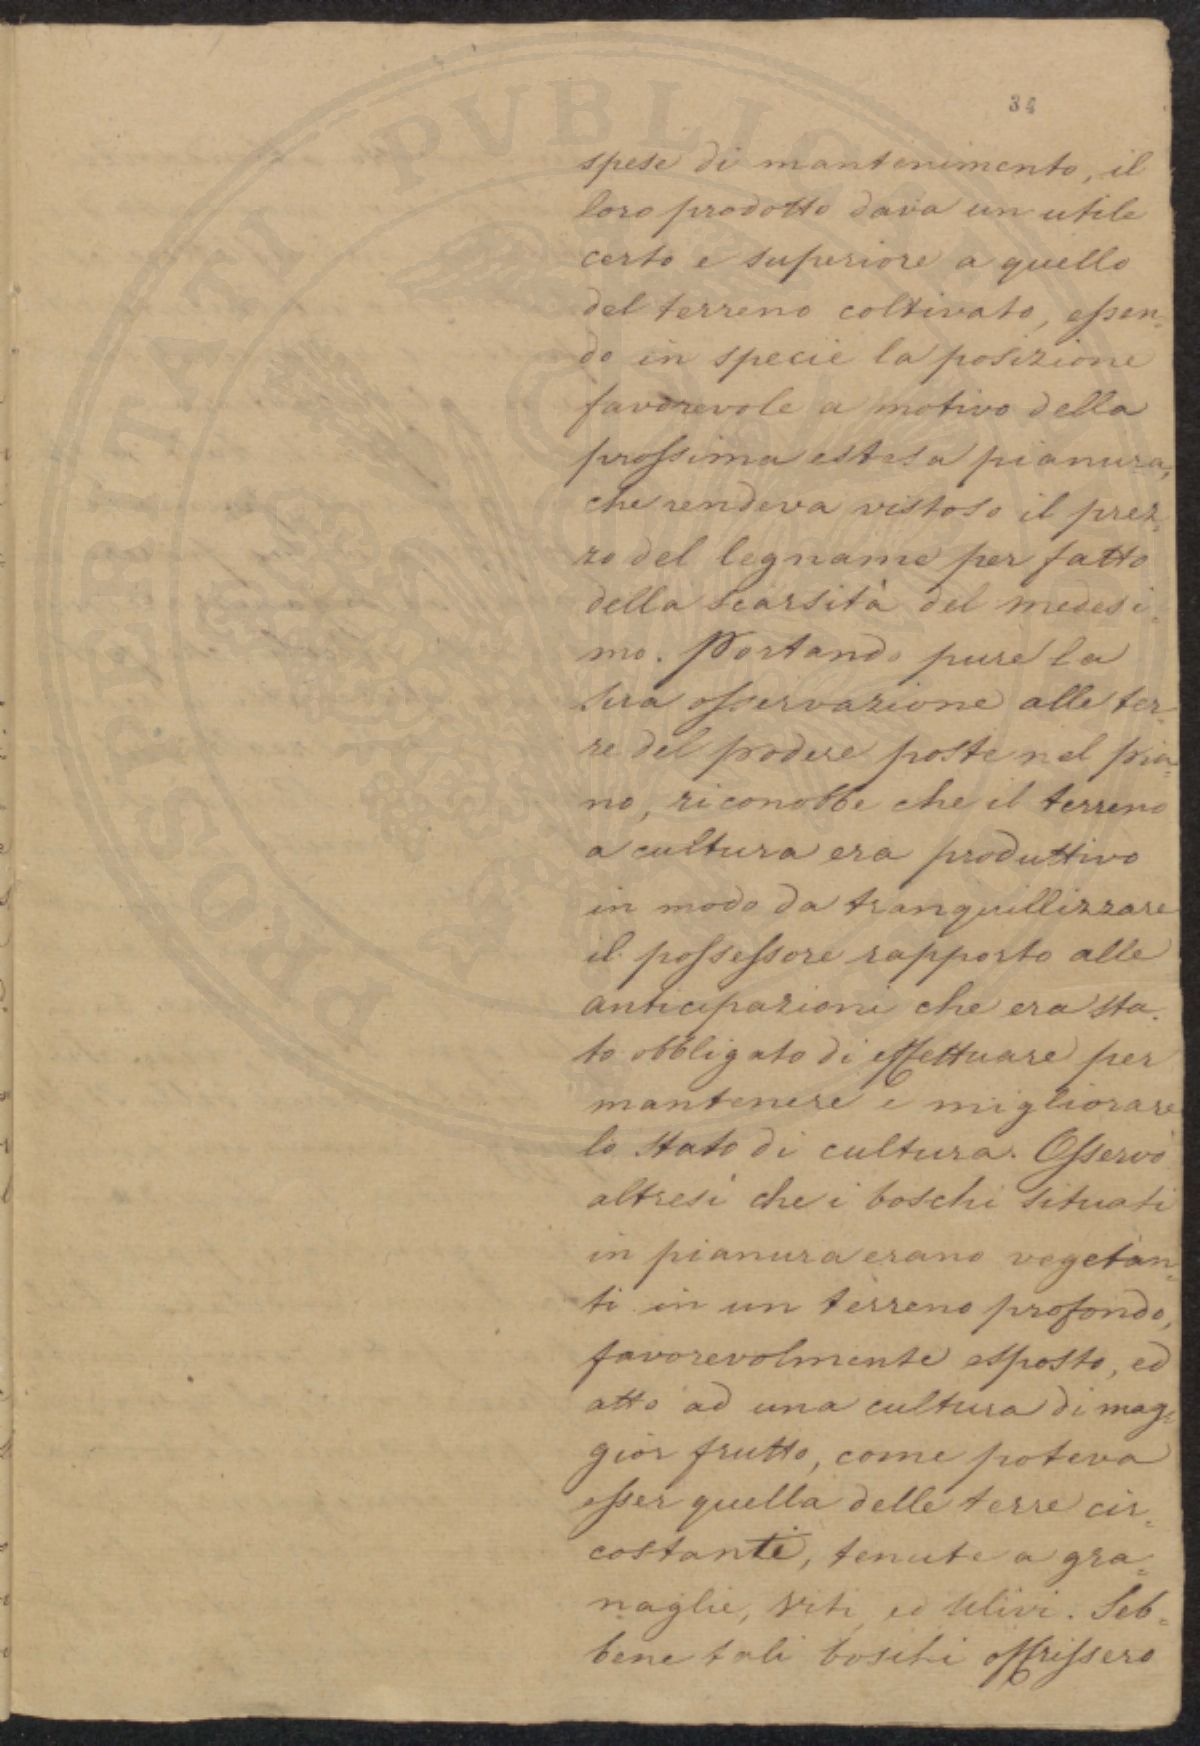 34
spese di mantenimento, il
loro prodotto dava un utile
certo e superiore a quello
del terreno coltivato, essen-
do in specie la posizione
favorevole a motivo della
prossima estesa pianura,
che rendeva vistoso il prez-
zo del legname per fatto
della scarsità del medesi-
mo. Portando pure la
sua osservazione alle ter-
re del podere poste nel pia-
no, riconobbe che il terreno
a cultura era produttivo
in modo da tranquillizzare
il possessore rapporto alle
anticipazioni che era sta-
to obbligato di effettuare per
mantenere e migliorare
lo stato di cultura. Osservò
altresì che i boschi situati
in pianura erano vegetan-
ti in un terreno profondo,
favorevolmente esposto, ed
atto ad una cultura di mag-
gior frutto, come poteva
esser quella delle terre cir-
costanti, tenute a gra-
naglie, viti, ed Ulivi. Seb-
bene tali boschi offrissero
PROSPERITATI PVBLICAE